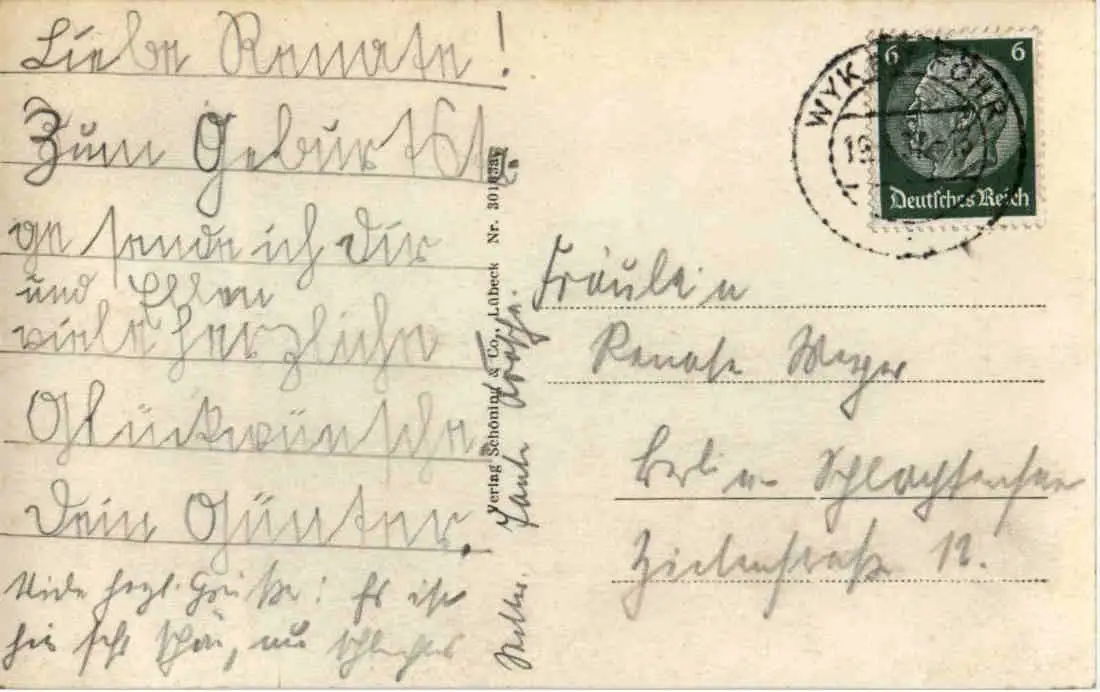 Liebe Renate!
Zum Geburtsta-
ge sende ich Dir
und Ellen
viele herzliche
Glückwünsche.
Dein Günter.
Viele herzl. Grüße! Es ist
hier sehr schön, nur schlechtes
Wetter. Tante
Verlag Schöning & Co., Lübeck Nr. 30
WYK FÖHR
6 6
Deutsches Reich
Fräulein
Renate
Berlin-Schlachtensee
Zietenstraße 12.